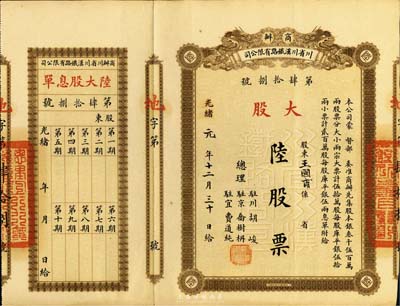 商辦
川省川漢鐵路有限公司
第肆拾捌號
大股
陸股票
本公司蒙
督部
奏准商辦先集股本銀叁千伍百萬
兩股票分大小兩宗大票計伍拾萬每股庫平銀伍拾
兩小票計貳百萬股每股庫平銀伍兩息單附給
股東王國商係
省
總理
駐川胡峻
駐京喬樹枏
駐宜費道純
光緒
元年十二月三十日給
商辦川省川漢鐵路有限公司
陸大股息單
第肆拾捌號
股東
第一期
第二期
第三期
第四期
第五期
第六期
第七期
第八期
第九期
第十期
光緒
年
月
日給
地字第
號
地
字
第